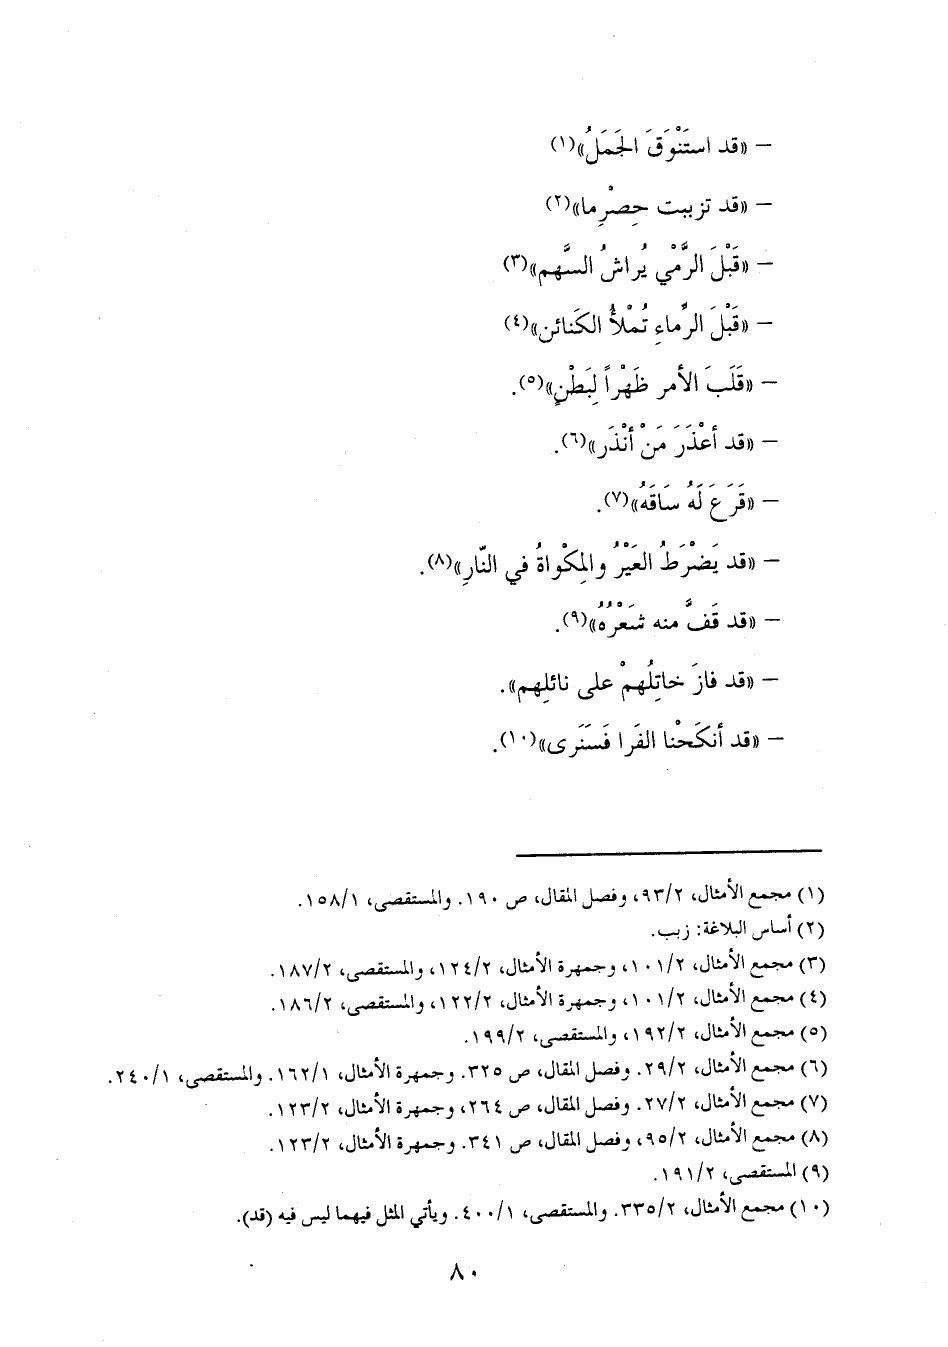 – «قد استَنْوَقَ الجَمَلُ»(١)
– «قد تزببت حِصْرِما»(٢)
– «قَبْلَ الرَّمْي يُراشُ السَّهم»(٣)
– «قَبْلَ الرِّماءِ تُمْلأُ الكَنائن»(٤)
– «قَلَبَ الأمر ظَهْراً لِبَطْنٍ»(٥).
– «قد أعْذَرَ مَنْ أنْذَر»(٦).
– «قَرَعَ لَهُ سَاقَهُ»(٧).
– «قد يَضْرَطُ العَيْرُ والمِكْواةُ في النّارِ»(٨).
– «قد قَفَّ منه شَعْرُهُ»(٩).
– «قد فازَ خاتِلُهمْ على نائلِهم».
– «قد أنكَحْنا الفَرا فَسَنَرى»(١٠).
(١) مجمع الأمثال، ٩٣/٢، وفصل المقال، ص ١٩٠. والمستقصى، ١٥٨/١.
(٢) أساس البلاغة: زبب.
(٣) مجمع الأمثال، ١٠١/٢، وجمهرة الأمثال، ١٢٤/٢، والمستقصى، ١٨٧/٢.
(٤) مجمع الأمثال، ١٠١/٢، وجمهرة الأمثال، ١٢٢/٢، والمستقصى، ١٨٦/٢.
(٥) مجمع الأمثال، ١٩٢/٢، والمستقصى، ١٩٩/٢.
(٦) مجمع الأمثال، ٢٩/٢. وفصل المقال، ص ٣٢٥. وجمهرة الأمثال، ١٦٢/١. والمستقصى، ٢٤٠/١.
(٧) مجمع الأمثال، ٢٧/٢. وفصل المقال، ص ٢٦٤، وجمهرة الأمثال، ١٢٣/٢.
(٨) مجمع الأمثال، ٩٥/٢، وفصل المقال، ص ٣٤١. وجمهرة الأمثال، ١٢٣/٢.
(٩) المستقصى، ١٩١/٢.
(١٠) مجمع الأمثال، ٣٣٥/٢. والمستقصى، ٤٠٠/١. ويأتي المثل فيهما ليس فيه (قد).
٨٠